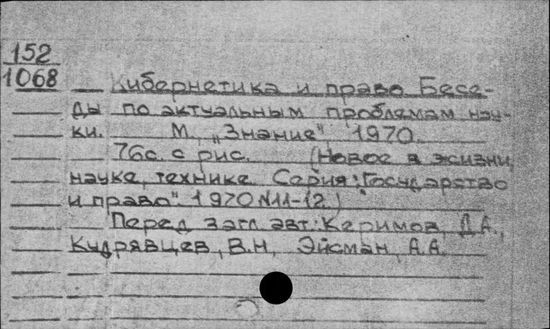 152
1068
Кибернетика и право Бесе-
ды по актуальным проблемам нау-
ки. М. „Знание" 1970.
76с. с рис. (Новое в жизни,
науке, технике Серия: Государство
и право". 1970 №11-12)
Перед загл. авт.: Керимов, Д.А.,
Кудрявцев, В.Н., Эйсман, А.А.